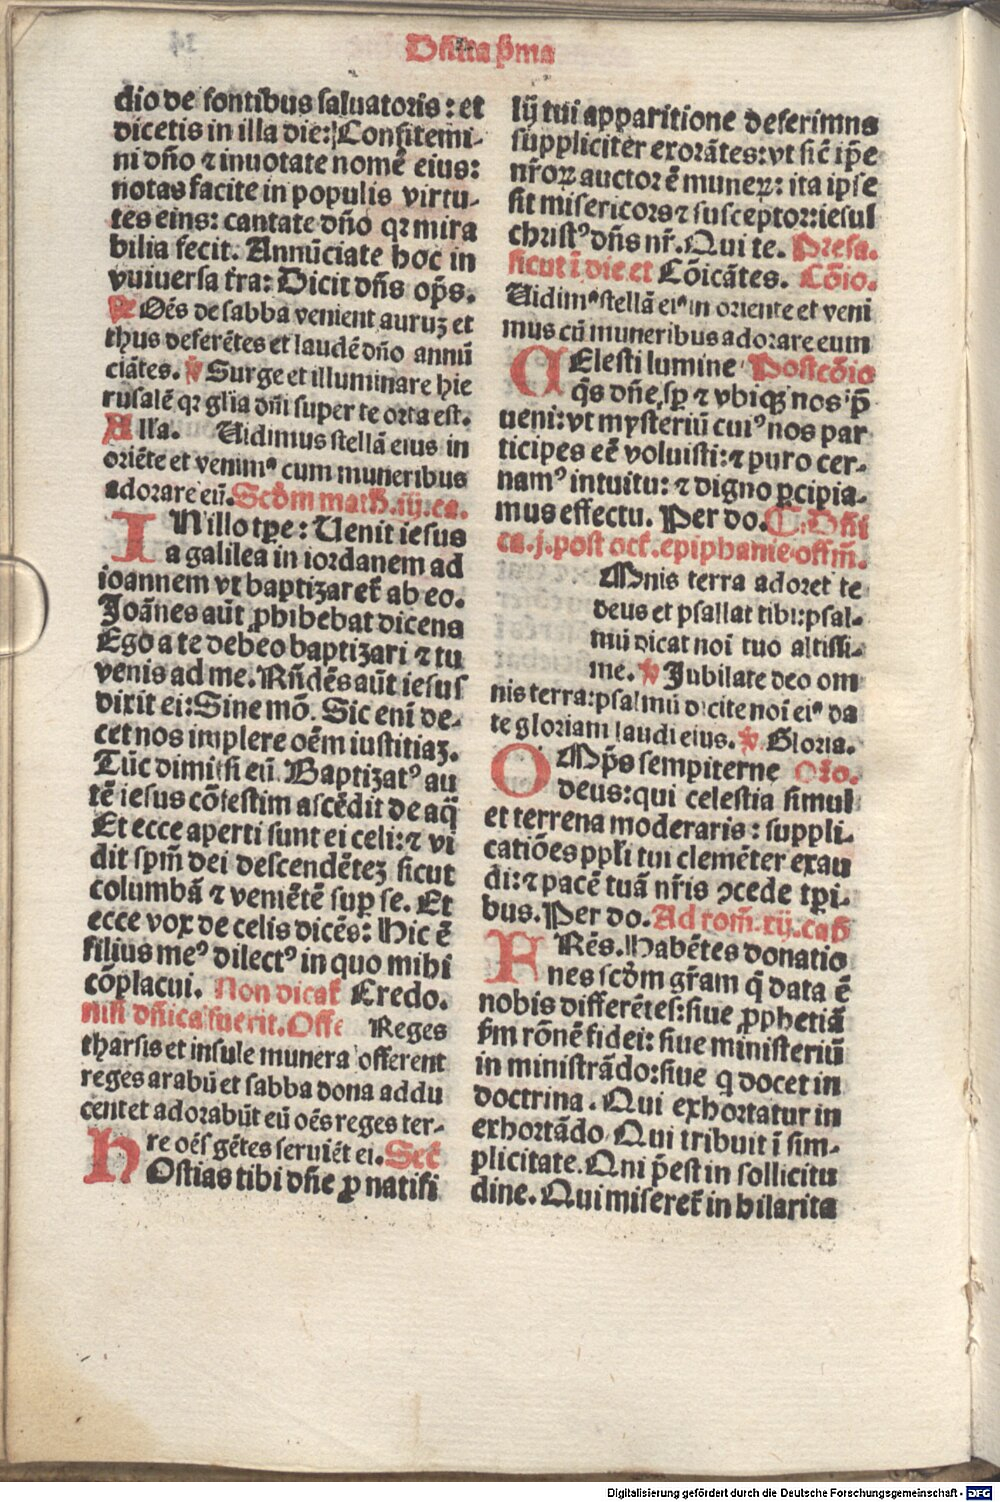 Dñica p̄ma
dio de fontibus saluatoris : et
dicetis in illa die: Confitemi-
ni dño ⁊ inuotate nomē eius:
notas facite in populis virtu-
tes eius: cantate dño qꝛ mira
bilia fecit. Annūciate hoc in
vniuersa tr̄a: Dicit dñs op̄s.
R̄ Oēs de sabba venient auruꝫ et
thus deferētes et laudē dño annū
ciātes. ℣ Surge et illuminare hie
rusalē qꝛ glīa dñi super te orta est.
Alla. Uidimus stellā eius in
oriēte et venimꝰ cum muneribus
adorare eū. Scḋm math. iij. ca.
IN illo tꝑe : Uenit iesus
a galilea in iordanem ad
ioannem vt baptizaret̄ ab eo.
Joānes aūt ꝓhibebat dicens
Ego a te debeo baptizari ⁊ tu
venis ad me. Rñdēs aūt iesus
dixit ei: Sine mō. Sic eni de-
cet nos implere oēm iustitiaꝫ.
Tūc dimisit eū. Baptizatꝰ au
tē iesus cōfestim ascēdit de aq̄
Et ecce aperti sunt ei celi: ⁊ vi
dit spm̄ dei descendēteꝫ sicut
columbā ⁊ veniētē suꝑ se. Et
ecce vox de celis dicēs: Hic ē
filius meꝰ dilectꝰ in quo mihi
cōplacui. Non dicat̄ Credo.
nisi dñica fuerit. Offe Reges
tharsis et insule munera offerent
reges arabū et sabba dona addu
cent et adorabūt eū oēs reges ter-
re oēs gētes seruiēt ei. Sec̄
HOstias tibi dñe ꝓ natifi
lij tui apparitione deferimus
suppliciter exorātes: vt sic̄ ip̄e
nr̄oꝝ auctor ē muneꝝ: ita ipse
sit misericors ⁊ susceptor: iesus
christꝰ dñs nr̄. Qui te. Prefa.
sicut ī die et Cōicātes. Cōio.
Uidimꝰ stellā eiꝰ in oriente et veni
mus cū muneribus adorare eum
CElesti lumine Postcōio
q̄s dñe sꝑ ⁊ vbiqꝫ nos p̄
ueni: vt mysteriū cuiꝰ nos par
ticipes eē voluisti: ⁊ puro cer-
namꝰ intuitu: ⁊ digno ꝑcipia-
mus effectu. Per do. C. Dñi
ca. j. post oct̄. epiphanie offm̄.
Mnis terra adoret te
deus et psallat tibi: psal-
mū dicat noī tuo altissi-
me. ℣ Jubilate deo om
nis terra: psalmū dicite noī eiꝰ da
te gloriam laudi eius. ℣ Gloria.
OMp̄s sempiterne Oŕo.
deus: qui celestia simul
et terrena moderaris : suppli-
catiōes ppl̄i tui clemēter exau
di: ⁊ pacē tuā nr̄is ꝯcede tꝑi-
bus. Per do. Ad rom̄. xij. cap̄
FRēs. Habētes donatio
nes scḋm gr̄am q̄ data ē
nobis differētes: siue ꝓphetiā
ẜm rōnē fidei: siue ministeriū
in ministrādo: siue q̇ docet in
doctrina . Qui exhortatur in
exhortādo. Qui tribuit ī sim-
plicitate. Qui p̄est in sollicitu
dine. Qui miseret̄ in hilarita
Digitalisierung gefördert durch die Deutsche Forschungsgemeinschaft - DFG